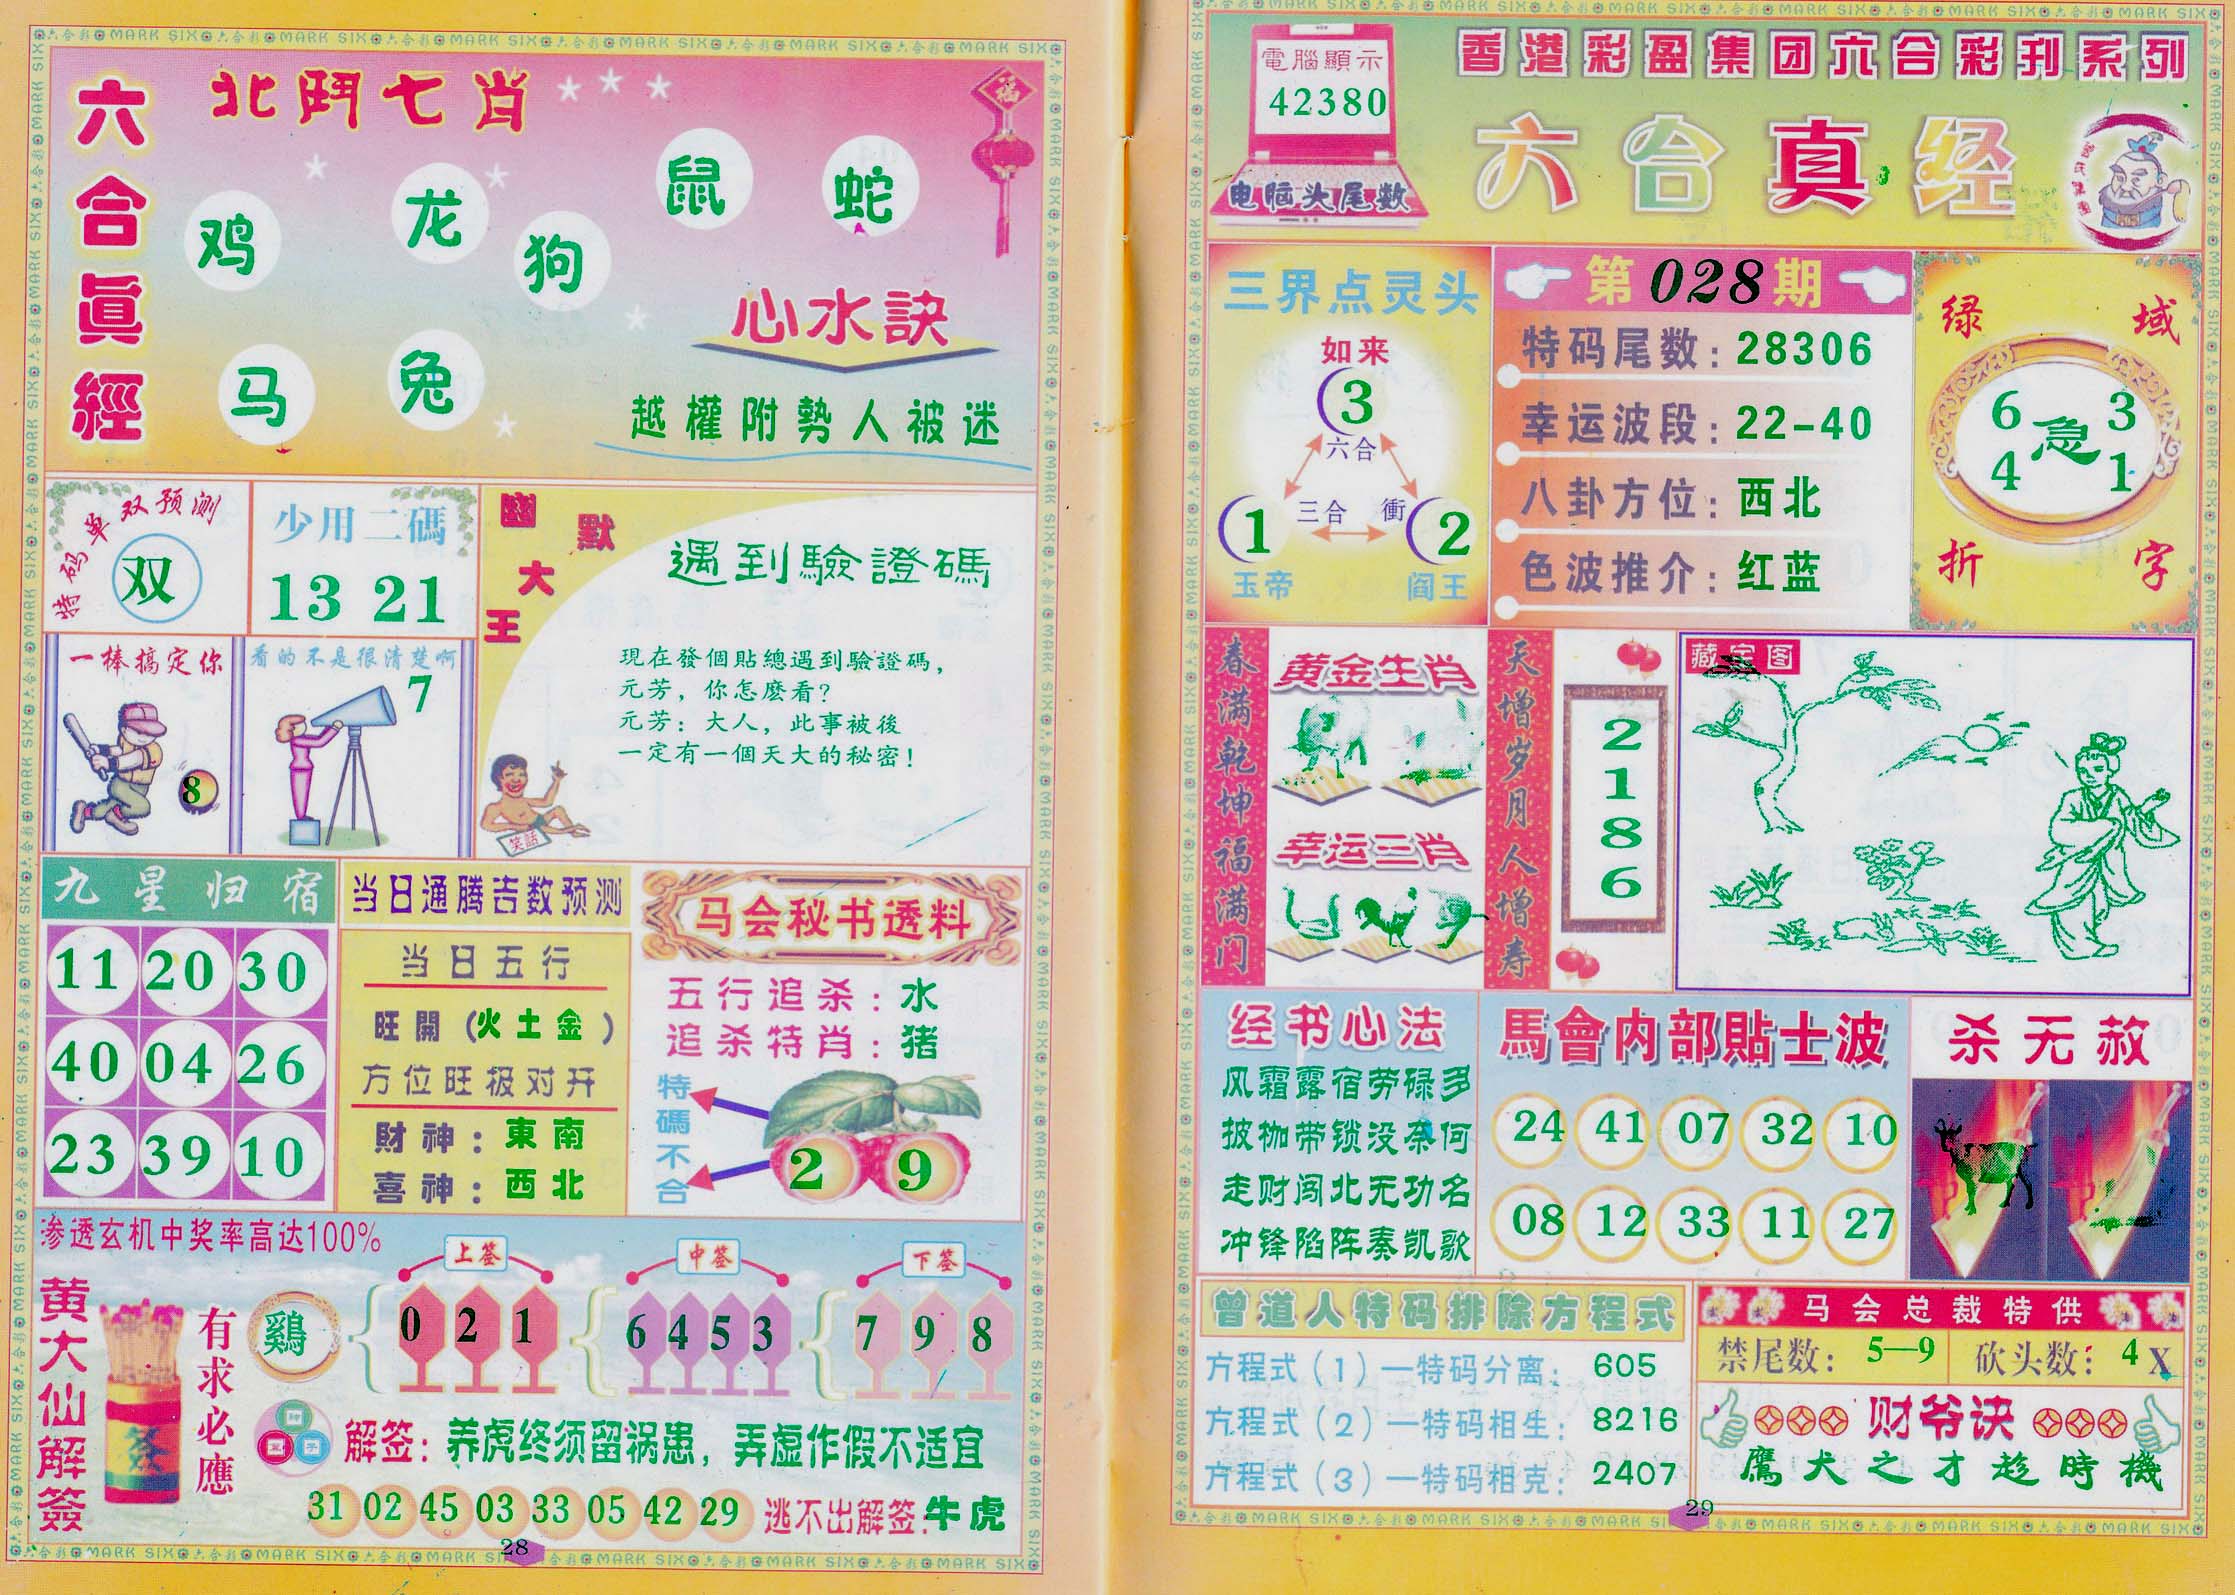 六合眞經
北鬥七肖
鸡
龙
狗
鼠
蛇
马
兔
福
心水訣
越權附勢人被迷
特码单双预测
双
少用二碼
13 21
幽默大王
遇到驗證碼
現在發個貼總遇到驗證碼，
元芳，你怎麽看？
元芳：大人，此事被後
一定有一個天大的秘密！
笑話
一棒搞定你
8
看的不是很清楚啊
7
九星归宿
11 20 30
40 04 26
23 39 10
当日通腾吉数预测
当日五行
旺開（火土金）
方位旺极对开
財神：東南
喜神：西北
马会秘书透料
五行追杀：水
追杀特肖：猪
特碼不合
2 9
渗透玄机中奖率高达100%
黄大仙解簽
有求必應
鷄
上签
0 2 1
中签
6 4 5 3
下签
7 9 8
解签：养虎终须留祸患，弄虚作假不适宜
31 02 45 03 33 05 42 29 逃不出解签：牛虎
28
電腦顯示
42380
电脑头尾数
香港彩盈集团六合彩刊系列
六合真经
三界点灵头
如来
3
六合
三合 衝
1
2
玉帝
阎王
第028期
特码尾数：28306
幸运波段：22-40
八卦方位：西北
色波推介：红蓝
绿域折字
6 3
急
4 1
春满乾坤福满门
黄金生肖
幸运三肖
天增岁月人增寿
2186
藏宝图
经书心法
风霜露宿劳碌多
披枷带锁没奈何
走财闯北无功名
冲锋陷阵奏凯歌
馬會内部貼士波
24 41 07 32 10
08 12 33 11 27
杀无赦
曾道人特码排除方程式
方程式（1）—特码分离：605
方程式（2）—特码相生：8216
方程式（3）—特码相克：2407
马会总裁特供
禁尾数：5—9 砍头数：4X
财爷诀
鷹犬之才趁時機
29